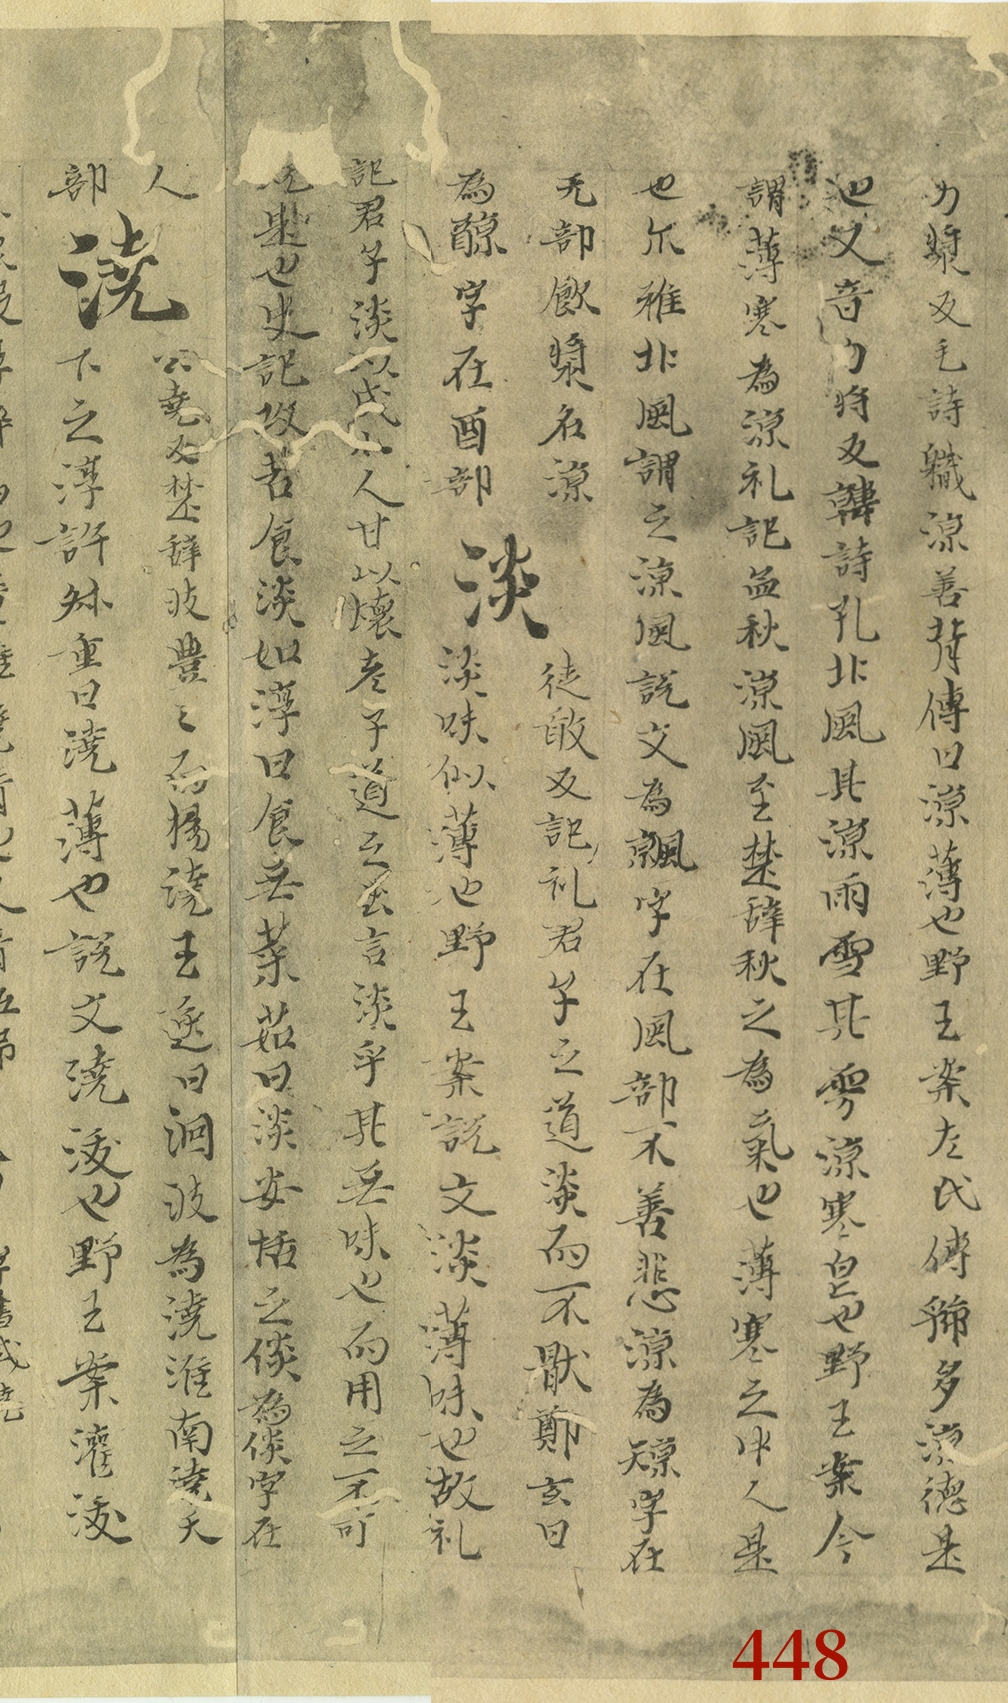 力漿反毛詩職涼善背傳曰涼薄也野王案左氏傳虢多涼德是
也又音力將反韓詩孔北風其涼雨雪其雱涼寒皃也野王案今
謂薄寒為涼礼記孟秋涼風至楚辞秋之為氣也薄寒之中人是
也尓雅北風謂之涼風說文為䬅字在風部不善悲涼為㹁字在
旡部飲漿名涼
為䣼字在酉部
淡
徒敢反記礼君子之道淡而不猒鄭玄曰
淡味似薄也野王案說文淡薄味也故礼
記君子淡以成小人甘以懷老子道之出言淡乎其无味也而用之不可
既是也史記攻苦食淡如淳曰食无菜茹曰淡安恬之倓為倓字在
人
部
澆
公堯反楚辞波豊〻而揚澆王逸曰洄波為澆淮南澆天
下之淳許叔重曰澆薄也說文澆㳊也野王案灌㳊
448